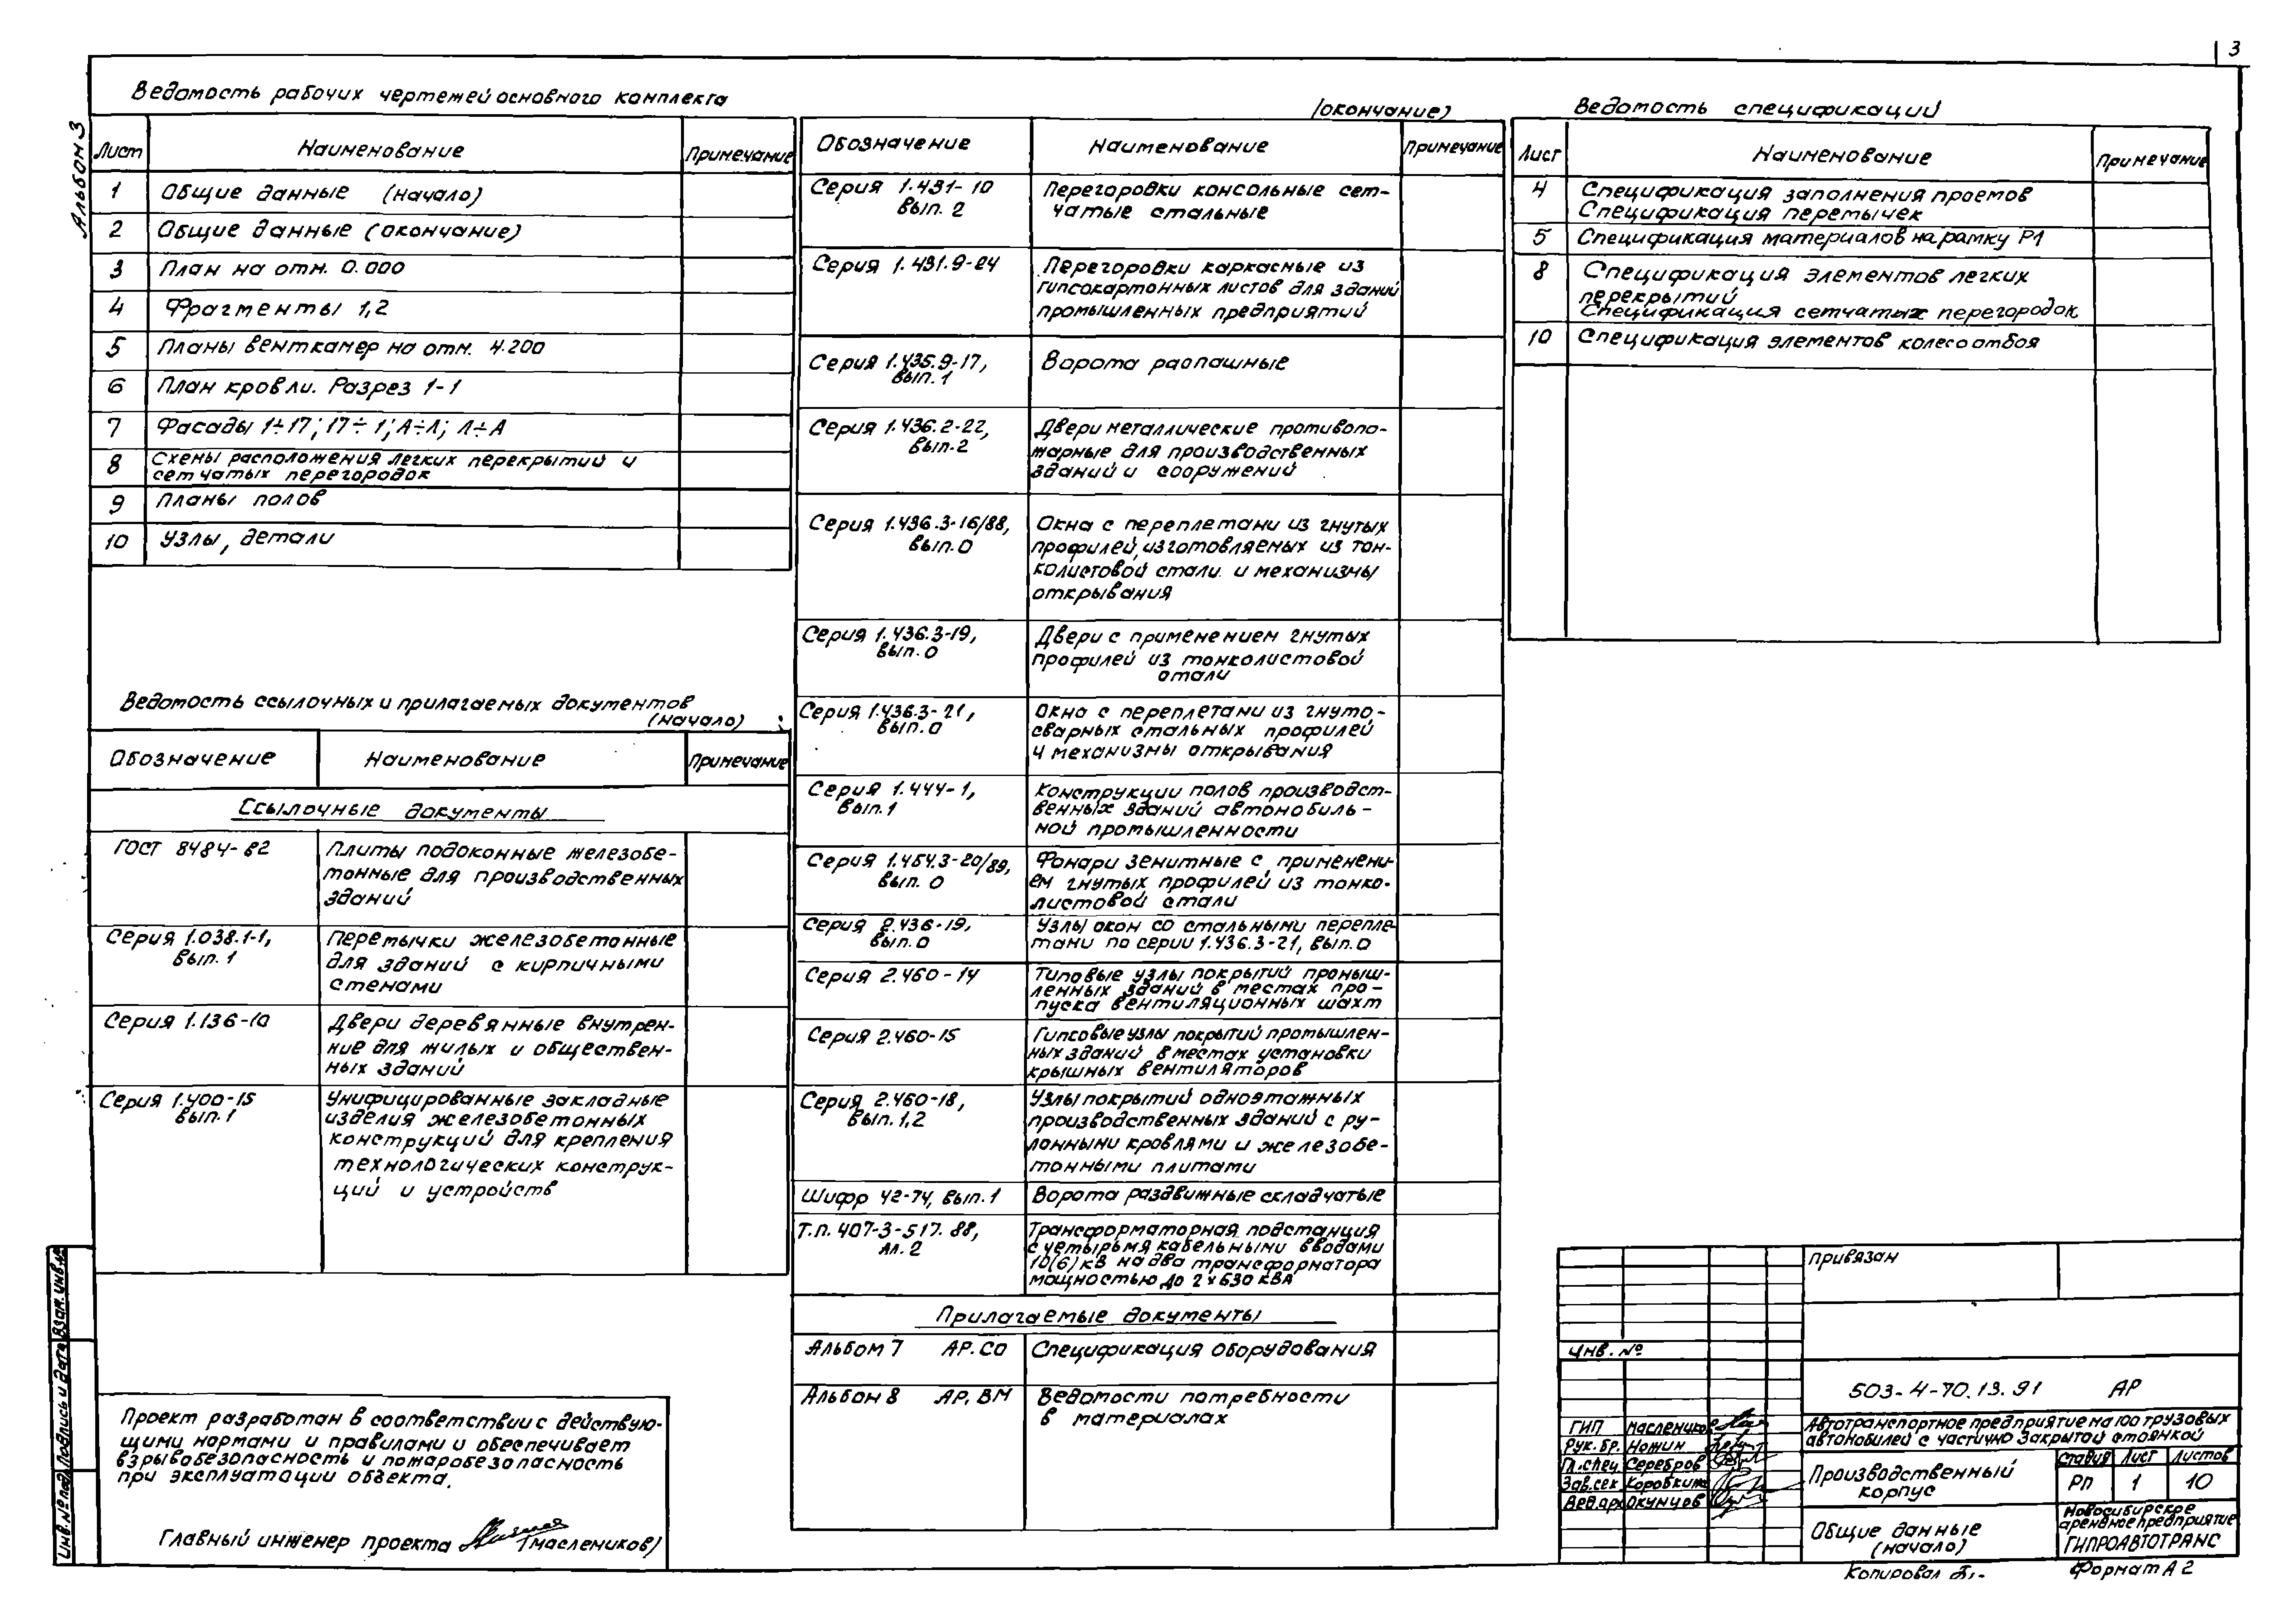 3
Альбом 3
Ведомость рабочих чертежей основного комплекта
Лист Наименование Примечание
1 Общие данные (начало)
2 Общие данные (окончание)
3 План на отм. 0.000
4 Фрагменты 1,2
5 Планы венткамер на отм. 4.200
6 План кровли. Разрез 1-1
7 Фасады 1÷17; 17÷1; А÷Л; Л÷А
8 Схемы расположения легких перекрытий и
сетчатых перегородок
9 Планы полов
10 Узлы, детали
Ведомость ссылочных и прилагаемых документов
(начало)
Обозначение Наименование Примечание
Ссылочные документы
ГОСТ 8484-82 Плиты подоконные железобе-
тонные для производственных
зданий
Серия 1.038.1-1, Перемычки железобетонные
вып. 1 для зданий с кирпичными
стенами
Серия 1.136-10 Двери деревянные внутрен-
ние для жилых и обществен-
ных зданий
Серия 1.400-15 Унифицированные закладные
вып. 1 изделия железобетонных
конструкций для крепления
технологических конструк-
ций и устройств
Проект разработан в соответствии с действую-
щими нормами и правилами и обеспечивает
взрывобезопасность и пожаробезопасность
при эксплуатации объекта.
Главный инженер проекта (Маслеников)
(окончание)
Обозначение Наименование Примечание
Серия 1.431-10 Перегородки консольные сет-
вып. 2 чатые стальные
Серия 1.431.9-24 Перегородки каркасные из
гипсокартонных листов для зданий
промышленных предприятий
Серия 1.435.9-17, Ворота распашные
вып. 1
Серия 1.436.2-22, Двери металлические противопо-
вып. 2 жарные для производственных
зданий и сооружений
Серия 1.436.3-16/88, Окна с переплетами из гнутых
вып. 0 профилей, изготовляемых из тон-
колистовой стали и механизмы
открывания
Серия 1.436.3-19, Двери с применением гнутых
вып. 0 профилей из тонколистовой
стали
Серия 1.436.3-21, Окна с переплетами из гнуто-
вып. 0 сварных стальных профилей
и механизмы открывания
Серия 1.444-1, Конструкции полов производст-
вып. 1 венных зданий автомобиль-
ной промышленности
Серия 1.464.3-20/89, Фонари зенитные с применени-
вып. 0 ем гнутых профилей из тонко-
листовой стали
Серия 2.436-19, Узлы окон со стальными перепле-
вып. 0 тами по серии 1.436.3-21, вып. 0
Серия 2.460-14 Типовые узлы покрытий промыш-
ленных зданий в местах про-
пуска вентиляционных шахт
Серия 2.460-15 Типсовые узлы покрытий промышлен-
ных зданий в местах установки
крышных вентиляторов
Серия 2.460-18, Узлы покрытий одноэтажных
вып. 1,2 производственных зданий с ру-
лонными кровлями и железобе-
тонными плитами
Шифр 42-74, вып. 1 Ворота раздвижные складчатые
Т.п. 407-3-517.88, Трансформаторная подстанция
Ал. 2 с четырьмя кабельными вводами
10(6) кВ на два трансформатора
мощностью до 2×630 кВА
Прилагаемые документы
Альбом 7 АР.СО Спецификация оборудования
Альбом 8 АР.ВМ Ведомости потребности
в материалах
Ведомость спецификаций
Лист Наименование Примечание
4 Спецификация заполнения проемов
Спецификация перемычек
5 Спецификация материалов на рамку Р1
8 Спецификация элементов легких
перекрытий
Спецификация сетчатых перегородок
10 Спецификация элементов колесоотбоя
Привязан
Инв. №
503-4-70.13.91 АР
ГИП Маслеников
Рук.бр. Ножин
Гл.спец Серебров
Зав.сек Коробкина
Вед.арх Окунцов
Автотранспортное предприятие на 100 грузовых
автомобилей с частично закрытой стоянкой
Производственный
корпус
Стадия Лист Листов
РП 1 10
Общие данные
(начало)
Новосибирское
арендное предприятие
ГИПРОАВТОТРАНС
Копировал
Формат А2
Инв. № подл. Подпись и дата Взам. инв. №